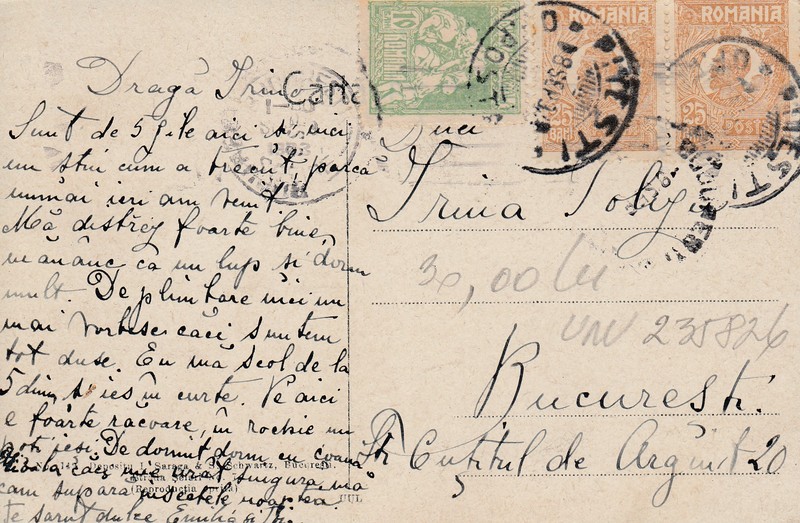 Carta
ROMANIA
ROMANIA
25 BANI
25 POSTA
PITESTI
Dragă Irino
Sunt de 5 zile aici și nici
nu știu cum a trecut, parcă
numai ieri am venit.
Mă distrez foarte bine,
mănânc ca un lup și dorm
mult. De plimbare nici nu
mai vorbesc căci suntem
tot duse. Eu mă scol de la
5 dim și ies în curte. Pe aici
e foarte răcoare, în rochie nu
poți ieși. De dormit dorm cu coana
căci mie urât singură, mă
cam supără insectele noaptea.
Te sărut dulce Emilia
Depozitul I. Saraga & S. Schwartz, București.
(Reproducția oprită)
Duei
Irina
30,00 lei
UNV 235826
București.
Str Cuțitul de Argint 20